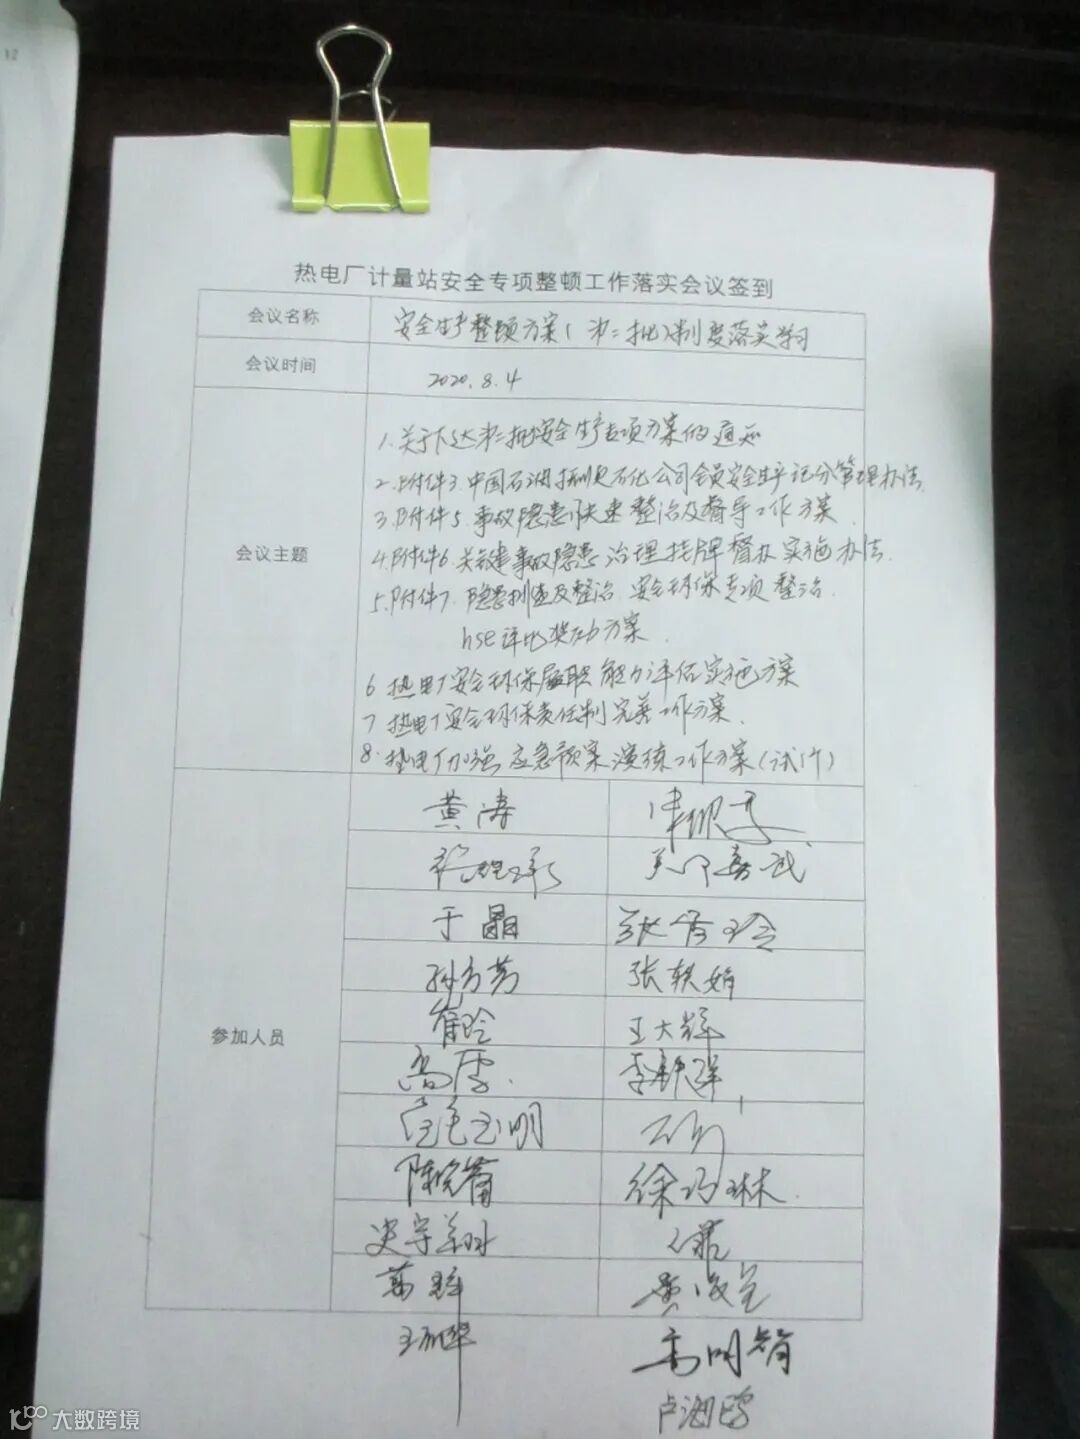 12
热电厂计量站安全专项整顿工作落实会议签到
会议名称 安全生产整顿方案(第二批)制度落实学习
会议时间 2020.8.4
会议主题
1.关于下达第二批安全生产专项方案的通知
2.附件3.中国石油抚顺石化公司全员安全生产记分管理办法.
3.附件5.事故隐患快速整治及督导工作方案.
4.附件6.关键事故隐患治理挂牌督办实施办法.
5.附件7.隐患排查及整治.安全环保专项整治.
hse评比奖励方案.
6 热电厂安全环保履职能力评估实施方案
7 热电厂安全环保责任制完善工作方案.
8.热电厂加强应急预案演练工作方案(试行)
参加人员
黄涛
于晶 张秀玲
孙方芳 张轶娟
崔玲 王大辉
高雪.
陈晓菊 徐巧琳.
史宇翔
葛辉 黄俊兰
高明娟
卢海鸥
大数跨境